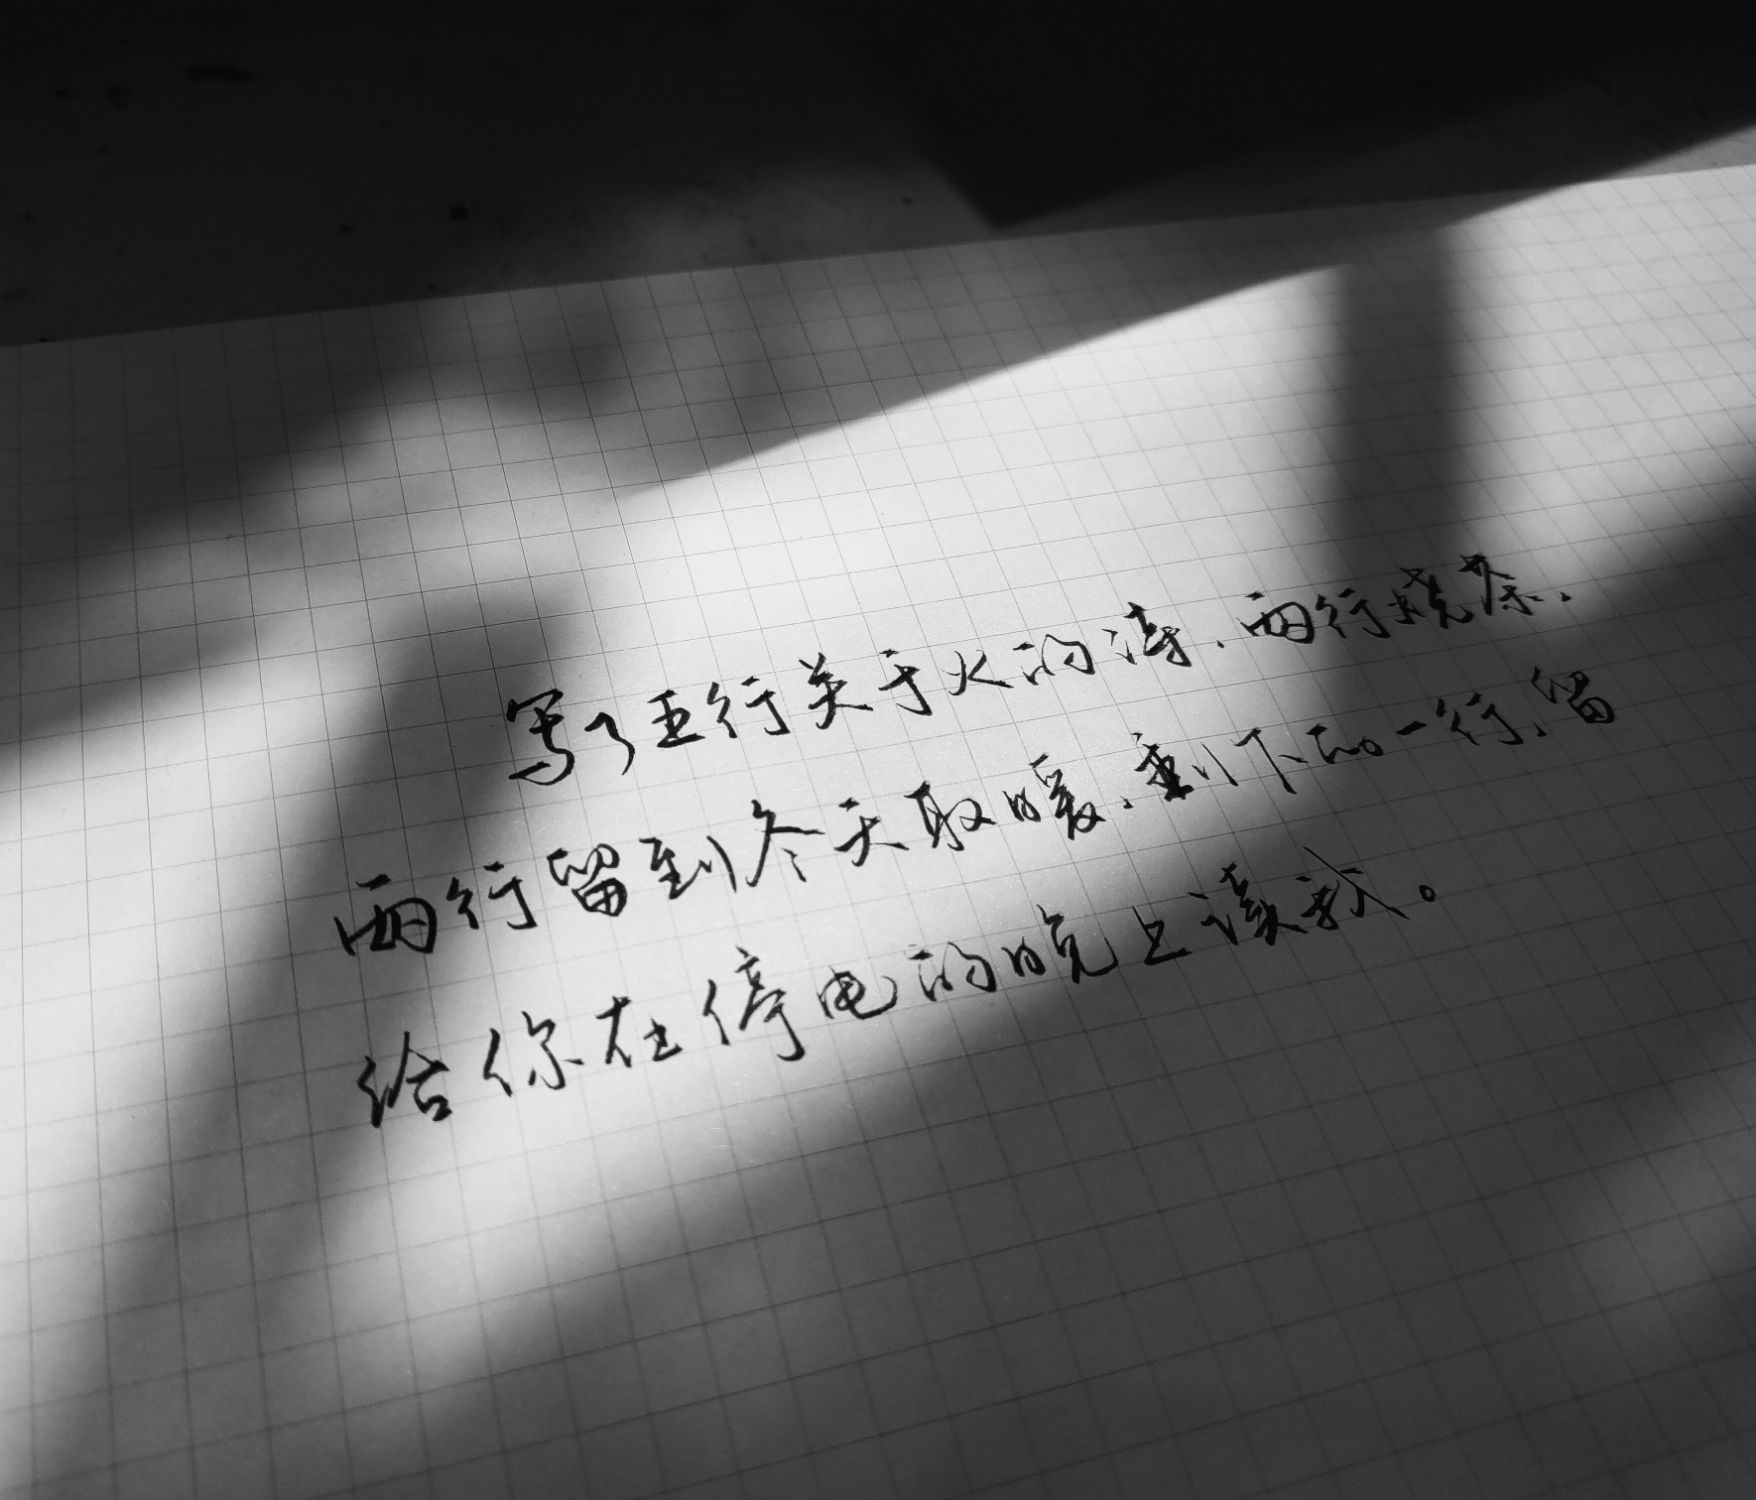 写了五行关于火的诗，两行烧茶，
两行留到冬天取暖，剩下的一行，留
给你在停电的晚上读我。